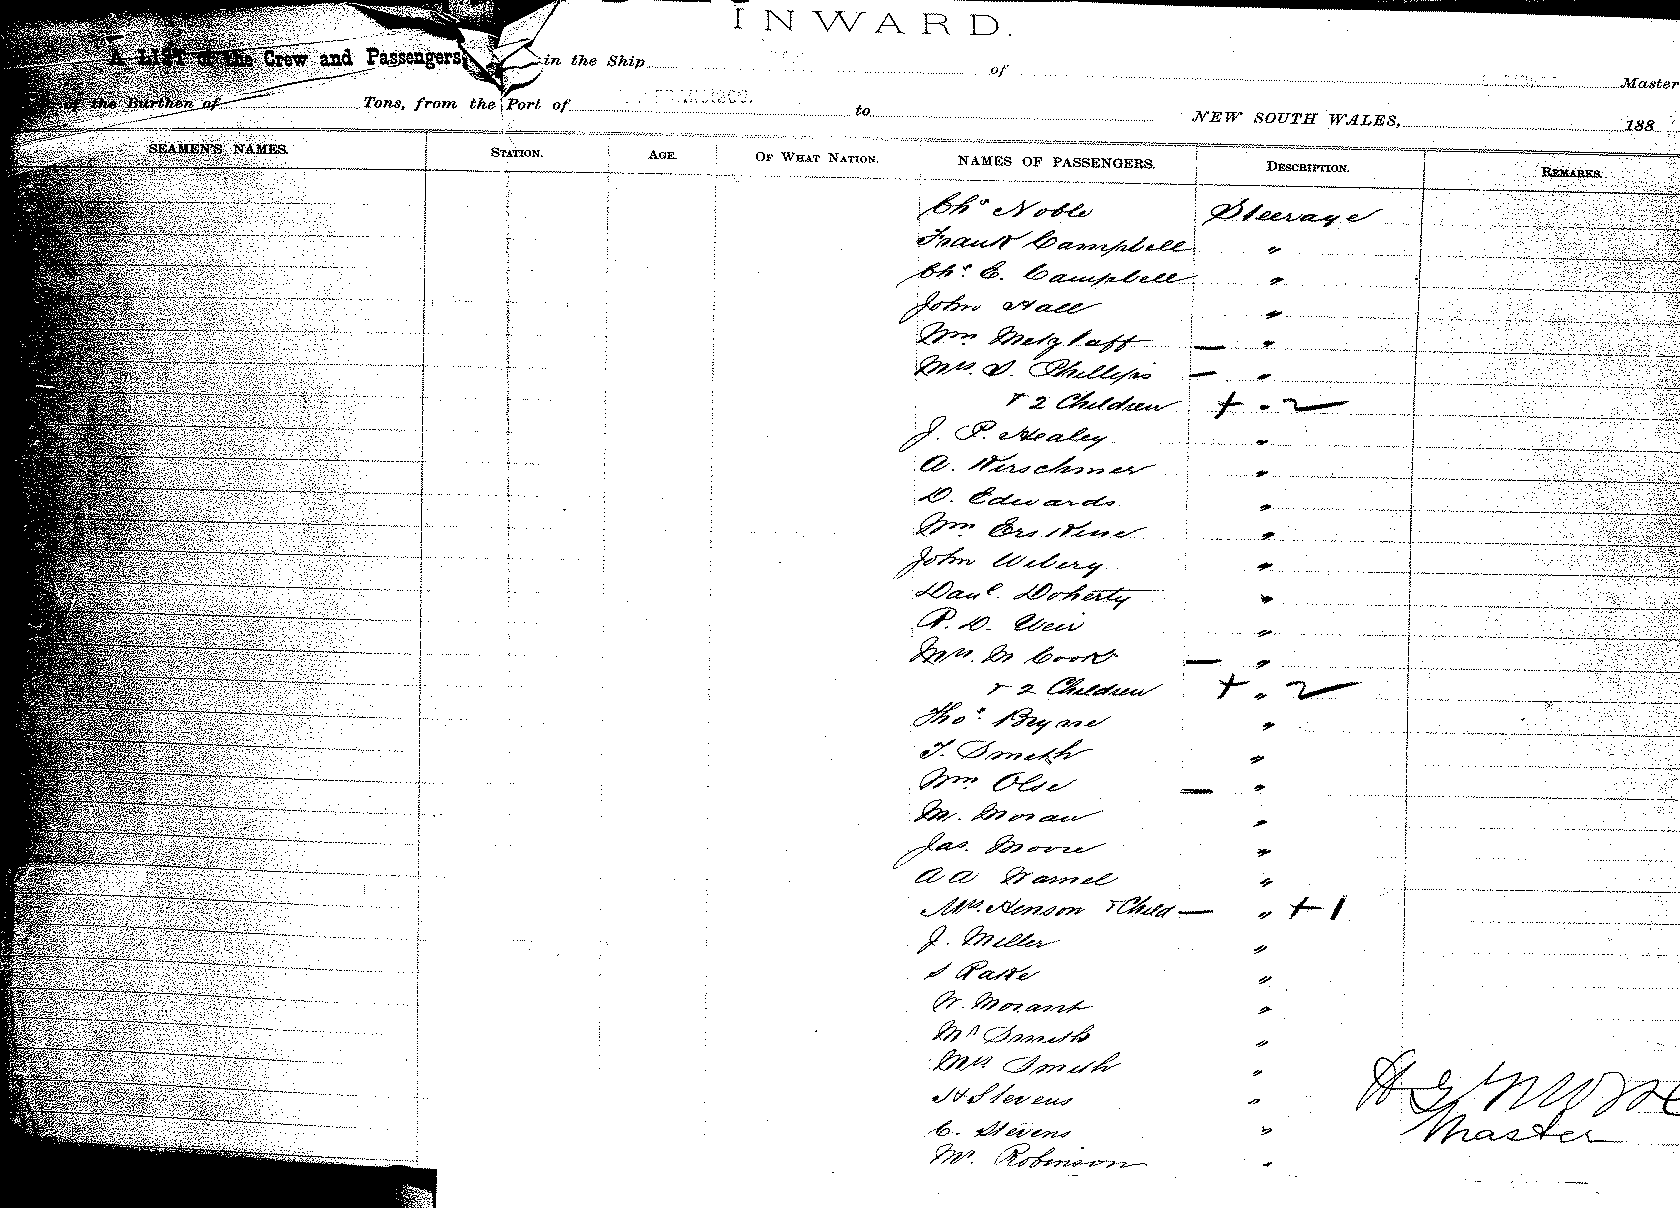 INWARD.
A LIST of the Crew and Passengers, in the Ship of Master
of the Burthen of Tons, from the Port of to NEW SOUTH WALES, 188
SEAMEN'S NAMES. STATION. AGE. OF WHAT NATION. NAMES OF PASSENGERS. DESCRIPTION. REMARKS.
Chs Noble Steerage
Frank Campbell "
Chs. E. Campbell "
John Hall "
Wm Metzlaff — "
Mrs. S. Phillips — "
+ 2 Children + " 2
J. P. Healey "
A. Kirschmer "
D. Edwards "
Wm Erskine "
John Wibery "
Danl. Doherty "
P. D. Weir "
Mrs. M Cook — "
+ 2 Children + " 2
Thos. Bryane "
T. Smith "
Wm. Olse — "
M. Moran "
Jas. Moore "
A A Hamel "
Mrs. Henson + Child — " + 1
J. Miller "
S Rake "
W. Morant "
Mr Smith "
Mrs Smith "
H Stevens "
C. Stevens "
Mr. Robinson "
Master